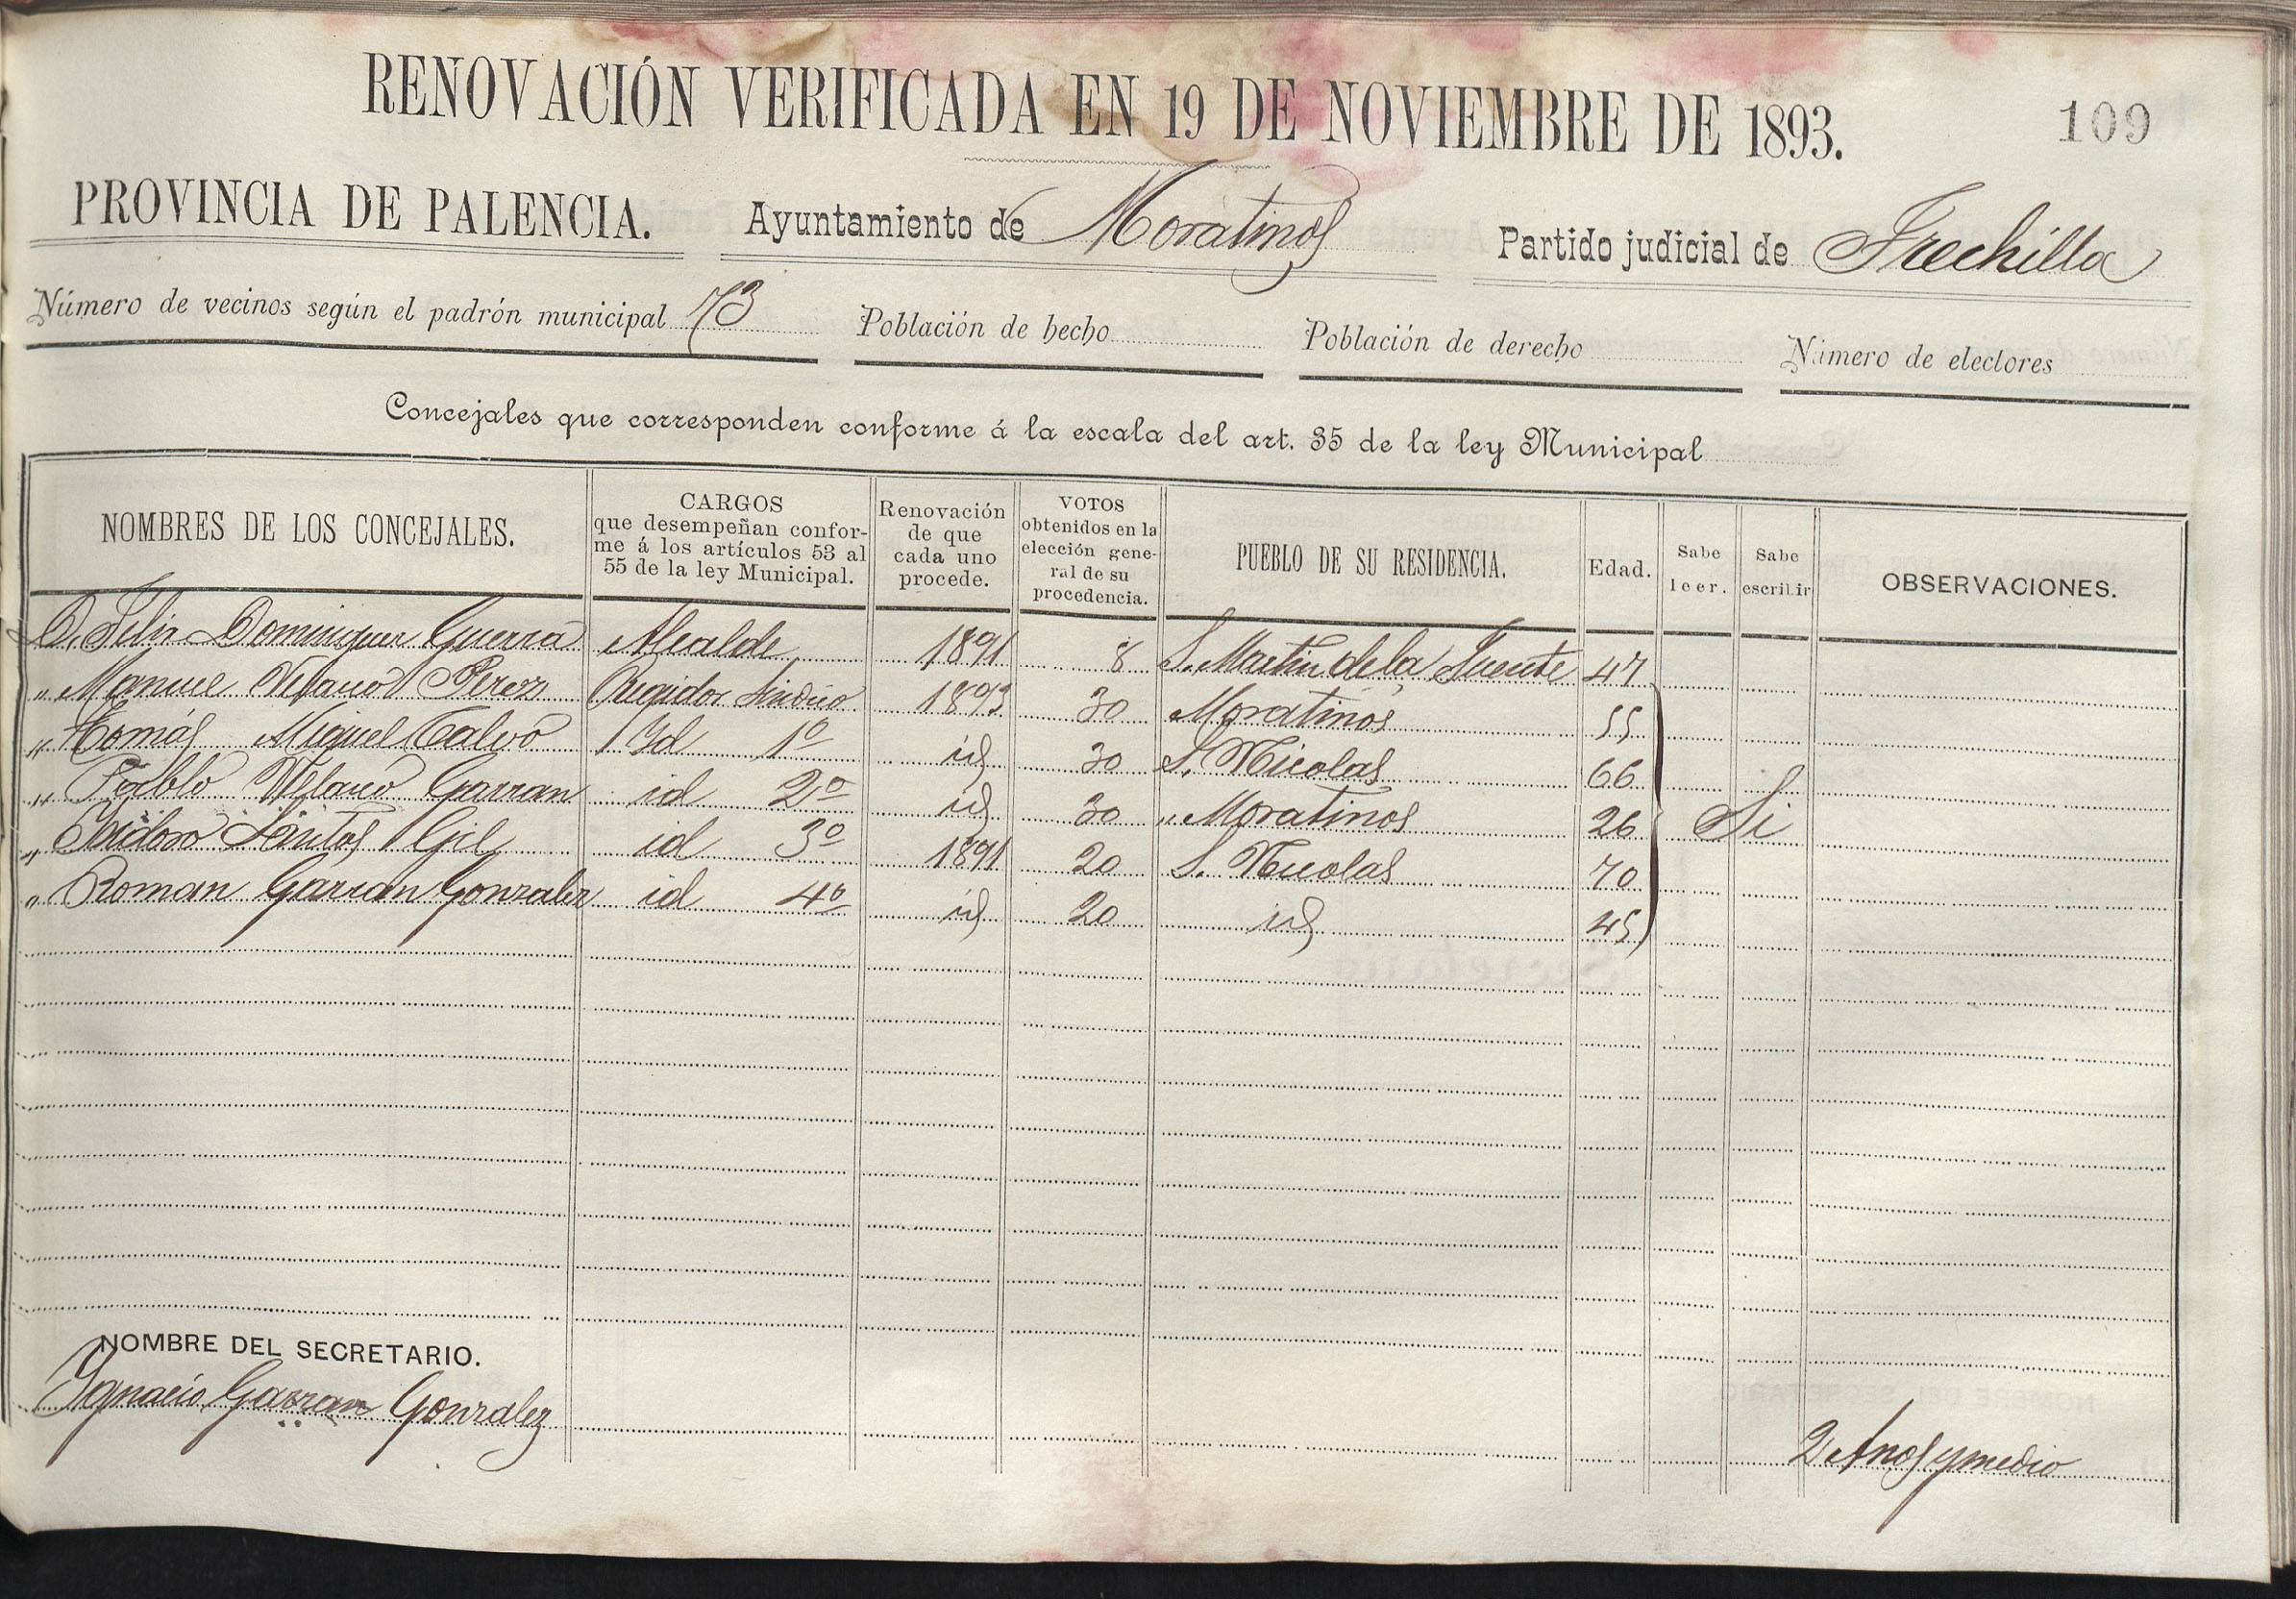 RENOVACIÓN VERIFICADA EN 19 DE NOVIEMBRE DE 1893.
109
PROVINCIA DE PALENCIA. Ayuntamiento de Moratinos Partido judicial de Frechilla
Número de vecinos según el padrón municipal 73 Población de hecho Población de derecho Número de electores
Concejales que corresponden conforme á la escala del art. 35 de la ley Municipal
NOMBRES DE LOS CONCEJALES. CARGOS que desempeñan confor-me á los artículos 53 al 55 de la ley Municipal. Renovación de que cada uno procede. VOTOS obtenidos en la elección gene-ral de su procedencia. PUEBLO DE SU RESIDENCIA. Edad. Sabe leer. Sabe escribir OBSERVACIONES.
D. Felix Dominguez Guerra Alcalde 1891 8 S. Martin de la Fuente 47
" Manuel Velasco Perez Regidor Sindico 1893 30 Moratinos 55
" Tomás Miguel Calvo Id 1º id 30 S. Nicolas 66
" Pablo Velasco Garran id 2º id 30 " Moratinos 26 Si
" Isidoro Santos Gil id 3º 1891 20 S. Nicolas 70
" Roman Garran Gonzalez id 4º id 20 id 45
NOMBRE DEL SECRETARIO.
Ygnacio Garran Gonzalez
2 Años y medio